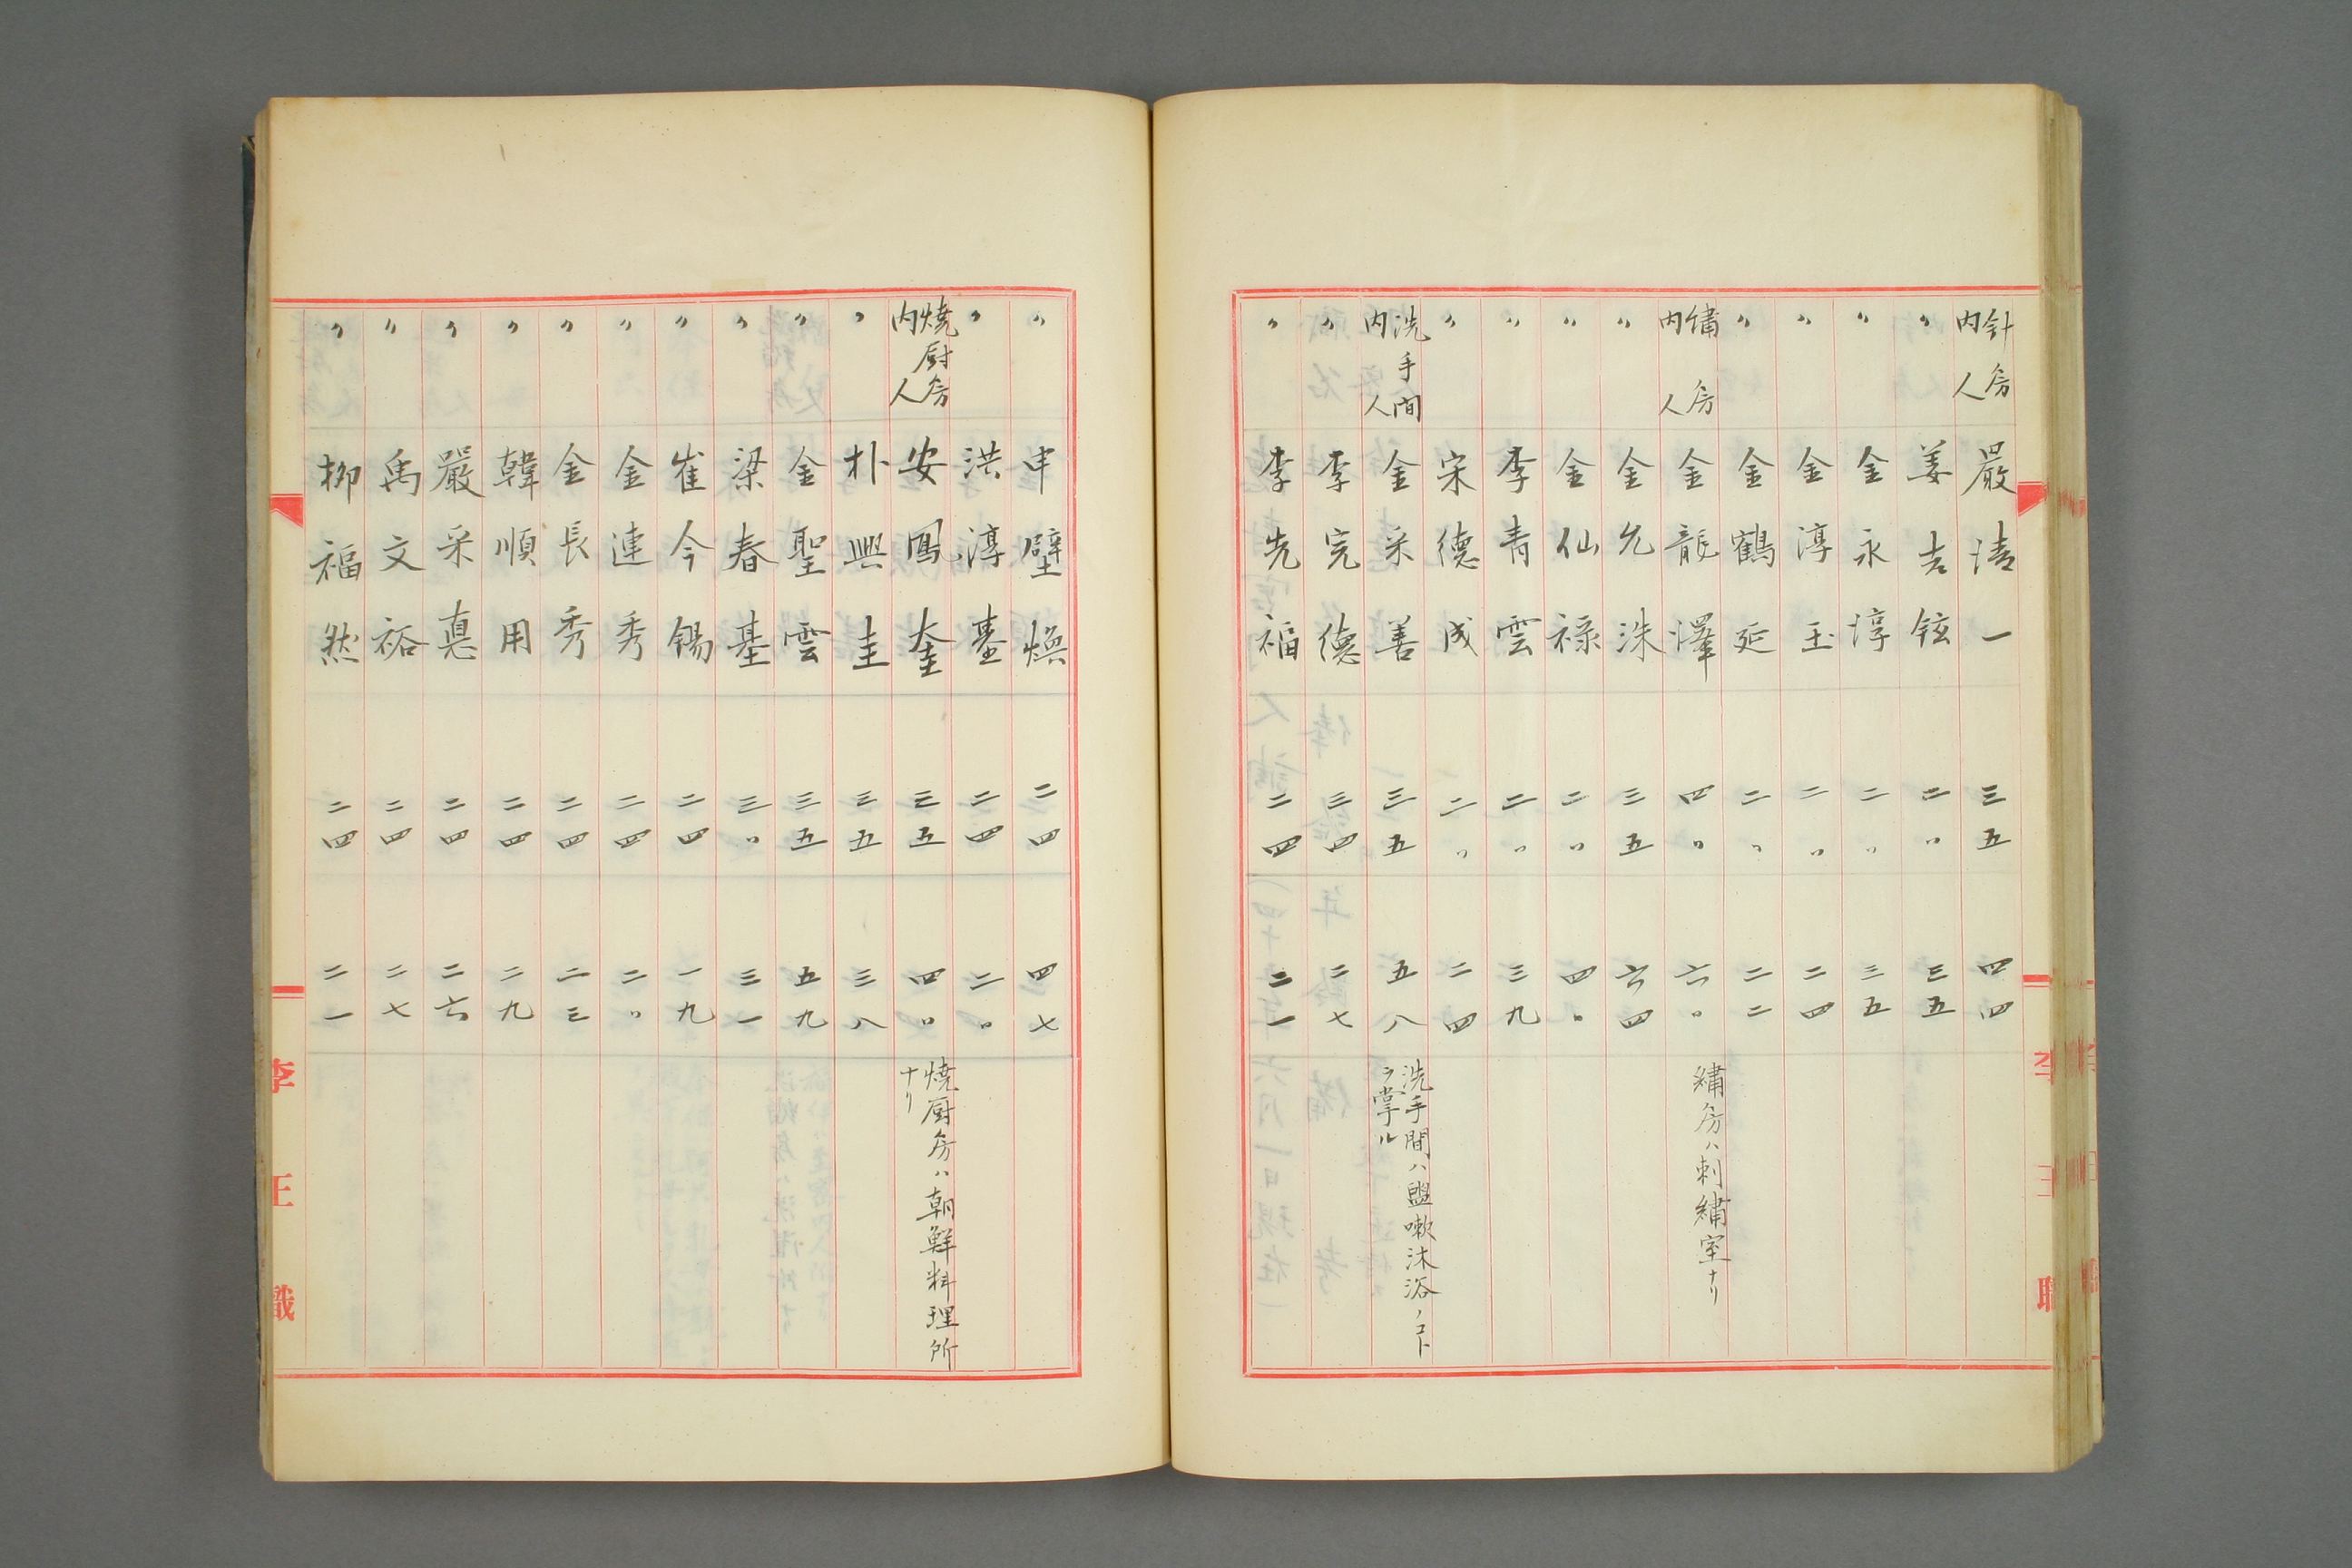 針房内人 嚴清一 三五 四四
〃 姜吉鉉 二〇 三五
〃 金永淳 二〇 三五
〃 金淳玉 二〇 二四
〃 金鶴延 二〇 二二
繡房内人 金龍澤 四〇 六〇 繡房ハ刺繡室ナリ
〃 金允洙 三五 六四
〃 金仙祿 二〇 四〇
〃 李青雲 二〇 三九
〃 宋德成 二〇 二四
洗手間内人 金采善 三五 五八 洗手間ハ盥嗽沐浴ノコトヲ掌ル
〃 李完德 三四 二七
〃 李先福 二四 二一
李王職
〃 申壁煥 二四 四七
〃 洪淳基 二四 二〇
焼厨房内人 安鳳奎 三五 四〇 焼厨房ハ朝鮮料理所ナリ
〃 朴興圭 三五 三八
〃 金聖雲 三五 五九
〃 梁春基 三〇 三一
〃 崔今錫 二四 一九
〃 金連秀 二四 二〇
〃 金長秀 二四 二三
〃 韓順用 二四 二九
〃 嚴采惠 二四 二六
〃 禹文裕 二四 二七
〃 柳福然 二四 二一
李王職